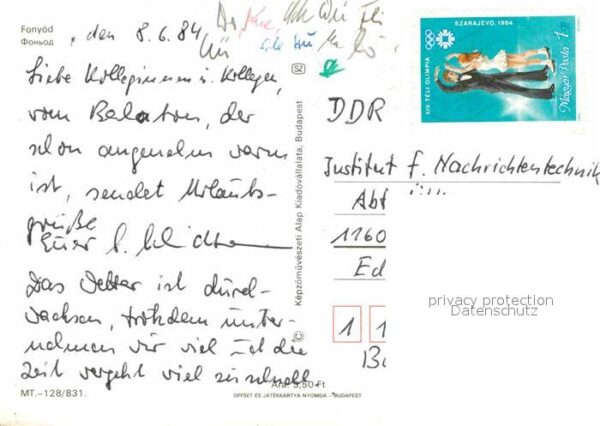 Fonyód
Фоньод
, den 8.6.84
Liebe Kolleginnen u. Kollegen,
vom Balaton, der
schon angenehm warm
ist, sendet Urlaubs-
grüße
Euer
Das Wetter ist durch-
wachsen, trotzdem unter-
nehmen wir viel und die
Zeit vergeht viel zu schnell.
MT.–128/831.
Ára: 3,50 Ft
OFFSET ÉS JÁTÉKKÁRTYA NYOMDA - BUDAPEST
SZ
© Képzőművészeti Alap Kiadóvállalata, Budapest
SZARAJEVO, 1984
XIV. TÉLI OLIMPIA
Magyar Posta 1 Ft
DDR
Institut f. Nachrichtentechnik
1160
Ed
1 1
privacy protection
Datenschutz